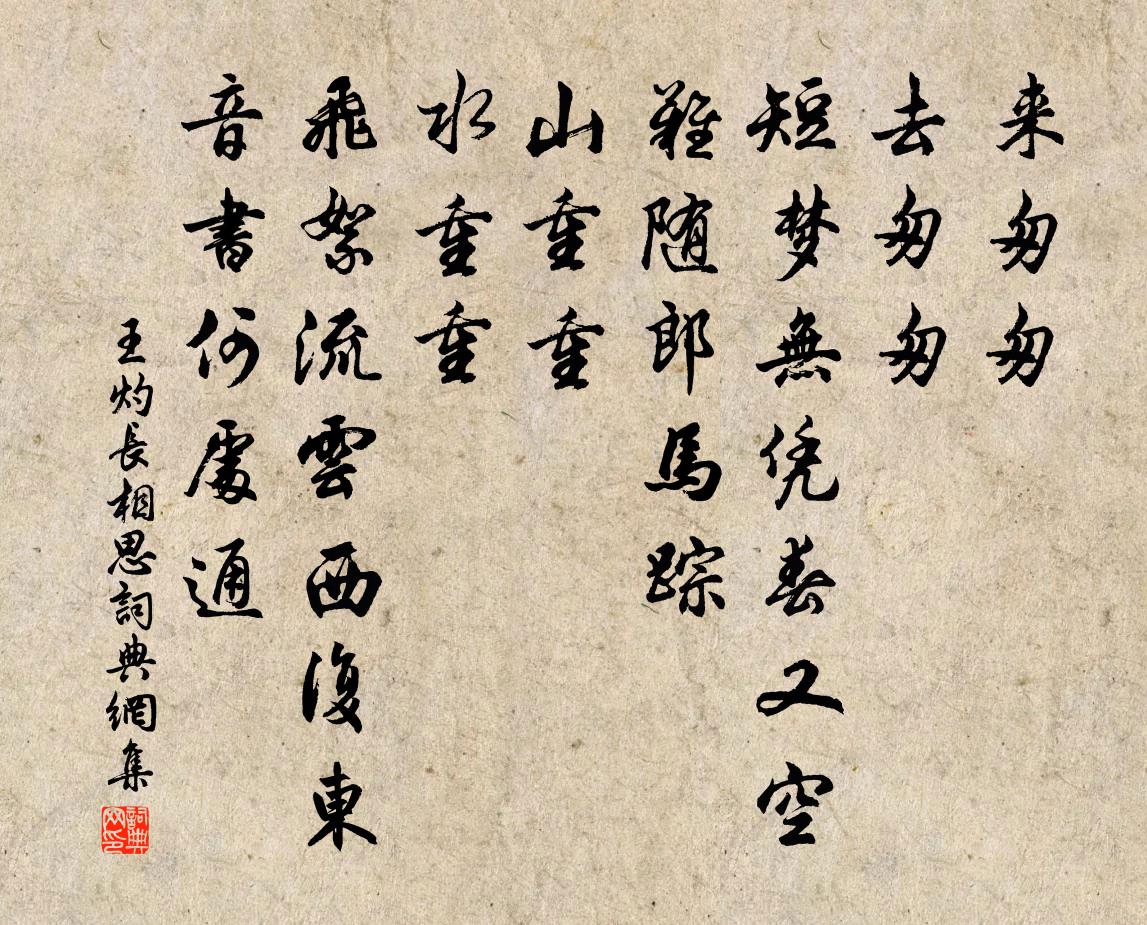 来匆匆
去匆匆
短梦無凭春又空
難随郎馬踪
山重重
水重重
飛絮流雲西復東
音書何處通
王灼長相思詞典網集
詞典网印